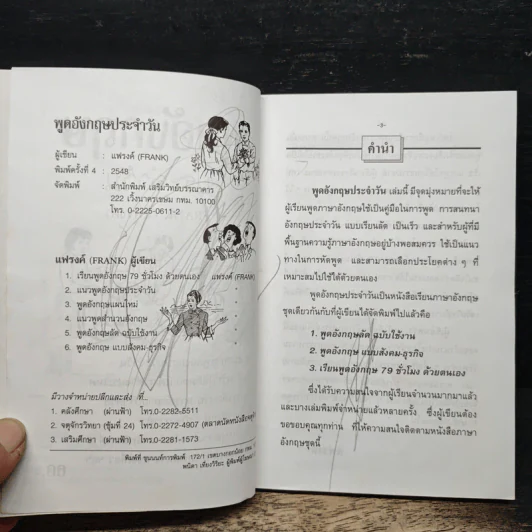 พูดอังกฤษประจำวัน
ผู้เขียน : แฟรงค์ (FRANK)
พิมพ์ครั้งที่ 4 : 2548
จัดพิมพ์ : สำนักพิมพ์ เสริมวิทย์บรรณาคาร
222 เวิ้งนาครเขษม กทม. 10100
โทร. 0-2225-0611-2
แฟรงค์ (FRANK) ผู้เขียน
1. เรียนพูดอังกฤษ 79 ชั่วโมง ด้วยตนเอง แฟรงค์ (FRANK)
2. แนวพูดอังกฤษประจำวัน "
3. พูดอังกฤษแผนใหม่ "
4. แนวพูดสำนวนอังกฤษ "
5. พูดอังกฤษลัด ฉบับใช้งาน "
6. พูดอังกฤษ แบบสังคม-ธุรกิจ "
มีวางจำหน่ายปลีกและส่ง ที่...
1. คลังศึกษา (ผ่านฟ้า) โทร.0-2282-5511
2. จตุจักรวิทยา (ซุ้มที่ 24) โทร.0-2272-4907 (ตลาดนัดหนังสือจตุจักร
3. เสริมศึกษา (ผ่านฟ้า) โทร.0-2281-1573
พิมพ์ที่ ชุมนนท์การพิมพ์ 172/1 เขตบางกอกน้อย กทม.
พนิดา เทียงวิริยะ ผู้พิมพ์ผู้โฆษณา
-3-
คำนำ
พูดอังกฤษประจำวัน เล่มนี้ มีจุดมุ่งหมายที่จะให้
ผู้เรียนพูดภาษาอังกฤษใช้เป็นคู่มือในการพูด การสนทนา
อังกฤษประจำวัน แบบเรียนลัด เป็นเร็ว และสำหรับผู้ที่มี
พื้นฐานความรู้ภาษาอังกฤษอยู่บ้างพอสมควร ใช้เป็นแนว
ทางในการหัดพูด และสามารถเลือกประโยคต่าง ๆ ที่
เหมาะสมไปใช้ได้ด้วยตนเอง
พูดอังกฤษประจำวันเป็นหนังสือเรียนภาษาอังกฤษ
ชุดเดียวกันกับที่ผู้เขียนได้จัดพิมพ์ไปแล้วคือ
1. พูดอังกฤษลัด ฉบับใช้งาน
2. พูดอังกฤษ แบบสังคม-ธุรกิจ
3. เรียนพูดอังกฤษ 79 ชั่วโมง ด้วยตนเอง
ซึ่งได้รับความสนใจจากผู้เรียนจำนวนมากมาแล้ว
และบางเล่มพิมพ์จำหน่ายแล้วหลายครั้ง ซึ่งผู้เขียนต้อง
ขอขอบคุณทุกท่าน ที่ให้ความสนใจติดตามหนังสือภาษา
อังกฤษชุดนี้